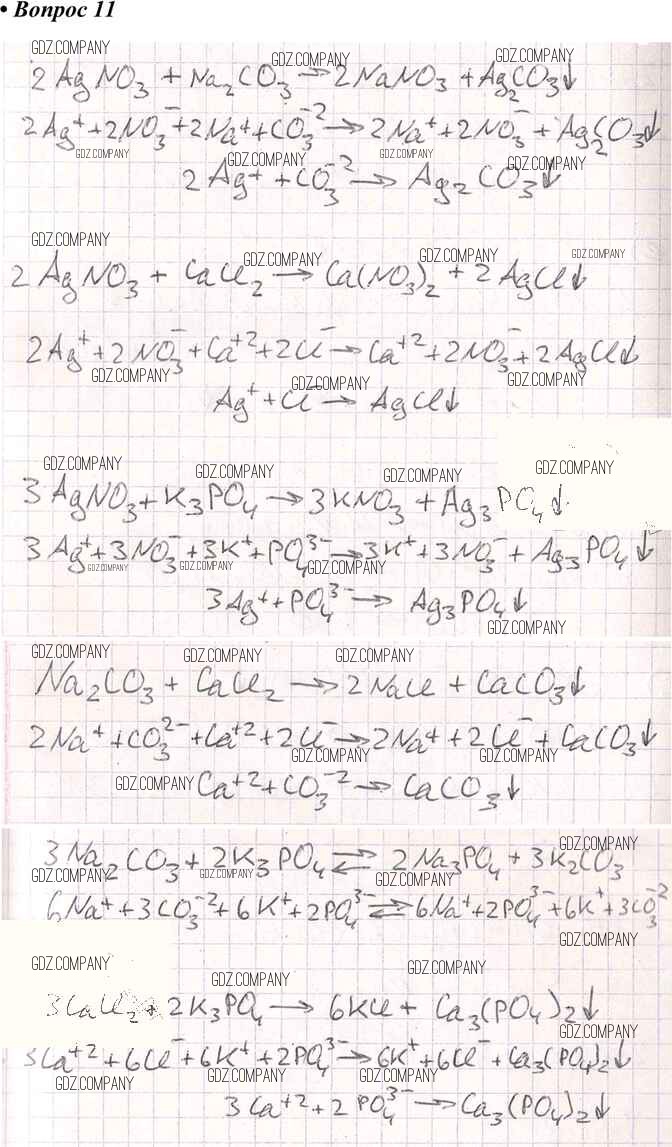 • Вопрос 11
GDZ.COMPANY GDZ.COMPANY GDZ.COMPANY
2AgNO₃ + Na₂CO₃ → 2NaNO₃ + Ag₂CO₃↓
2Ag⁺ + 2NO₃⁻ + 2Na⁺ + CO₃⁻² → 2Na⁺ + 2NO₃⁻ + Ag₂CO₃↓
GDZ.COMPANY GDZ.COMPANY GDZ.COMPANY GDZ.COMPANY
2Ag⁺ + CO₃⁻² → Ag₂CO₃↓
GDZ.COMPANY GDZ.COMPANY GDZ.COMPANY GDZ.COMPANY
2AgNO₃ + CaCl₂ → Ca(NO₃)₂ + 2AgCl↓
2Ag⁺ + 2NO₃⁻ + Ca⁺² + 2Cl⁻ → Ca⁺² + 2NO₃⁻ + 2AgCl↓
GDZ.COMPANY GDZ.COMPANY GDZ.COMPANY
Ag⁺ + Cl⁻ → AgCl↓
GDZ.COMPANY GDZ.COMPANY GDZ.COMPANY GDZ.COMPANY
3AgNO₃ + K₃PO₄ → 3KNO₃ + Ag₃PO₄↓
3Ag⁺ + 3NO₃⁻ + 3K⁺ + PO₄³⁻ → 3K⁺ + 3NO₃⁻ + Ag₃PO₄↓
GDZ.COMPANY GDZ.COMPANY GDZ.COMPANY
3Ag⁺ + PO₄³⁻ → Ag₃PO₄↓
GDZ.COMPANY
GDZ.COMPANY GDZ.COMPANY GDZ.COMPANY
Na₂CO₃ + CaCl₂ → 2NaCl + CaCO₃↓
2Na⁺ + CO₃²⁻ + Ca⁺² + 2Cl⁻ → 2Na⁺ + 2Cl⁻ + CaCO₃↓
GDZ.COMPANY GDZ.COMPANY
GDZ.COMPANY Ca⁺² + CO₃⁻² → CaCO₃↓
GDZ.COMPANY
3Na₂CO₃ + 2K₃PO₄ ⇄ 2Na₃PO₄ + 3K₂CO₃
GDZ.COMPANY GDZ.COMPANY GDZ.COMPANY
6Na⁺ + 3CO₃⁻² + 6K⁺ + 2PO₄³⁻ ⇄ 6Na⁺ + 2PO₄³⁻ + 6K⁺ + 3CO₃⁻²
GDZ.COMPANY
GDZ.COMPANY GDZ.COMPANY GDZ.COMPANY
3CaCl₂ + 2K₃PO₄ → 6KCl + Ca₃(PO₄)₂↓
GDZ.COMPANY
3Ca⁺² + 6Cl⁻ + 6K⁺ + 2PO₄³⁻ → 6K⁺ + 6Cl⁻ + Ca₃(PO₄)₂↓
GDZ.COMPANY GDZ.COMPANY GDZ.COMPANY GDZ.COMPANY
3Ca⁺² + 2PO₄³⁻ → Ca₃(PO₄)₂↓